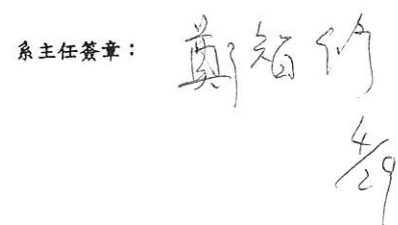 系主任簽章：鄭智修
4/29